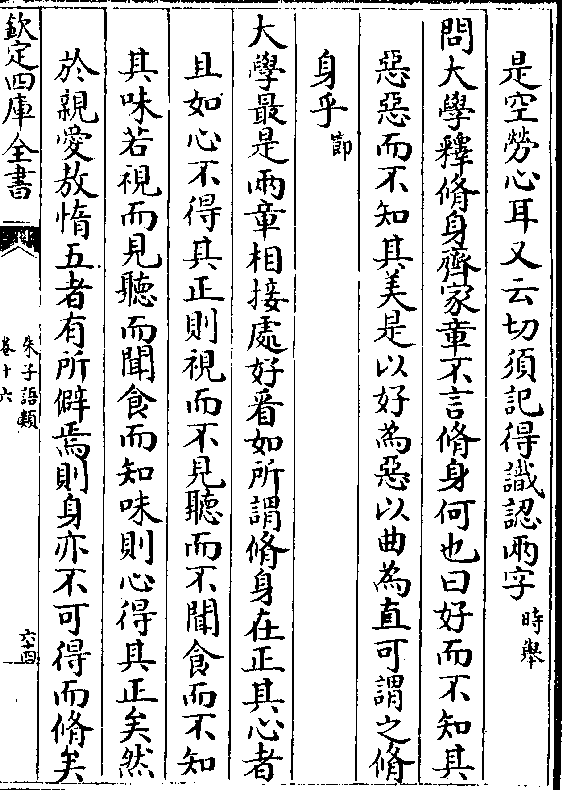 是空勞心耳又云切須記得識認兩字時舉
問大學釋脩身齊家章不言脩身何也曰好而不知其
惡惡而不知其美是以好為惡以曲為直可謂之脩
身乎節
大學最是兩章相接處好看如所謂脩身在正其心者
且如心不得其正則視而不見聽而不聞食而不知
其味若視而見聽而聞食而知味則心得其正矣然
於親愛敖惰五者有所僻焉則身亦不可得而脩矣
欽定四庫全書
朱子語類
卷十六
六十四